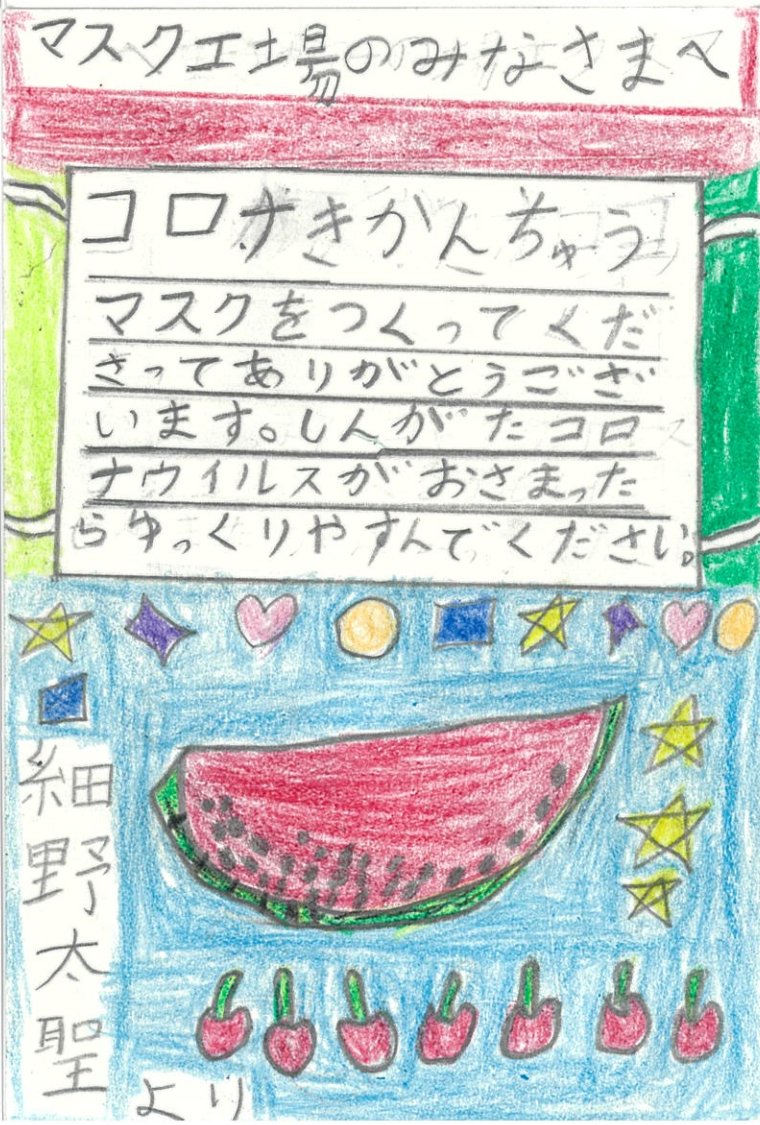 マスク工場のみなさまへ
コロナきかんちゅう
マスクをつくってくだ
さってありがとうござ
います。しんがたコロ
ナウイルスがおさまった
らゆっくりやすんでください。
細野太聖
より